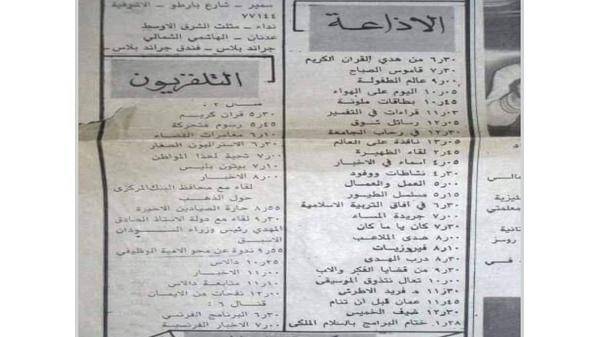 سمير - شارع بارطو - الاشرفية
٧٧١٤٤
نداء - مثلث الشرق الاوسط
عدنان - الهاشمي الشمالي
جراند بلاس - فندق جراند بلاس
الاذاعة
٦ر٣٠ من هدي القران الكريم
٧ر٣٠ قاموس الصباح
٩ر٠٠ عالم الطفولة
١٠ر٠٥ اليوم على الهواء
١٠ر٤٥ بطاقات ملونة
١١ر٠٣ قراءات في التفسير
١٢ر٠٥ رسائل شوق
١٢ر٣٠ في رحاب الجامعة
١٣ر٠٥ نافذة على العالم
٢ر٤٥ لقاء الظهيرة
٤ر٠٥ اسماء في الاخبار
٤ر٣٠ نشاطات ووفود
٥ر٠٠ العمل والعمال
٥ر١٥ مسلسل الطيور
٦ر٣٠ في آفاق التربية الاسلامية
٧ر٠٠ جريدة المساء
٧ر٣٠ كان يا ما كان
٨ر٠٠ هدى الملاعب
٨ر١٠ فيروزيات
٩ر٣٠ درب الهدى
٩ر٣٠ من قضايا الفكر والاب
١٠ر٠٠ تعال نتذوق الموسيقى
١١ر٣٠ م فريد الاطرش
١١ر٤٥ عمان قبل ان تنام
١٢ر٣٠ ضيف الخميس
١ر٢٨ ختام البرامج بالسلام الملكي
التلفزيون
٥ر٣٠ قران كريم
٥ر٤٥ رسوم متحركة
٦ر١٠ مغامرات الفضاء
٦ر٣٠ الاستراليون الصغار
٧ر٠٠ تحية لهذا المواطن
٧ر١٠ بيتون بليس
٨ر٠٠ الاخبار
لقاء مع محافظ البنك المركزي
حول الذهب
٨ر٥٥ حارة الصيادين الاخيرة
٩ر٣٠ لقاء مع دولة الاستاذ الصادق
المهدي رئيس وزراء السودان
الاسبق
٩ر٥٥ ندوة عن محو الامية الوظيفي
١٠ر٢٥ دالاس
١١ر٠٠ الاخبار
١١ر١٠ متابعة دالاس
١٢ر٠٠ نفحات من الايمان
قنال ٦ :
٦ر٣٠ البرنامج الفرنسي
٧ر٠٠ الاخبار الفرنسية